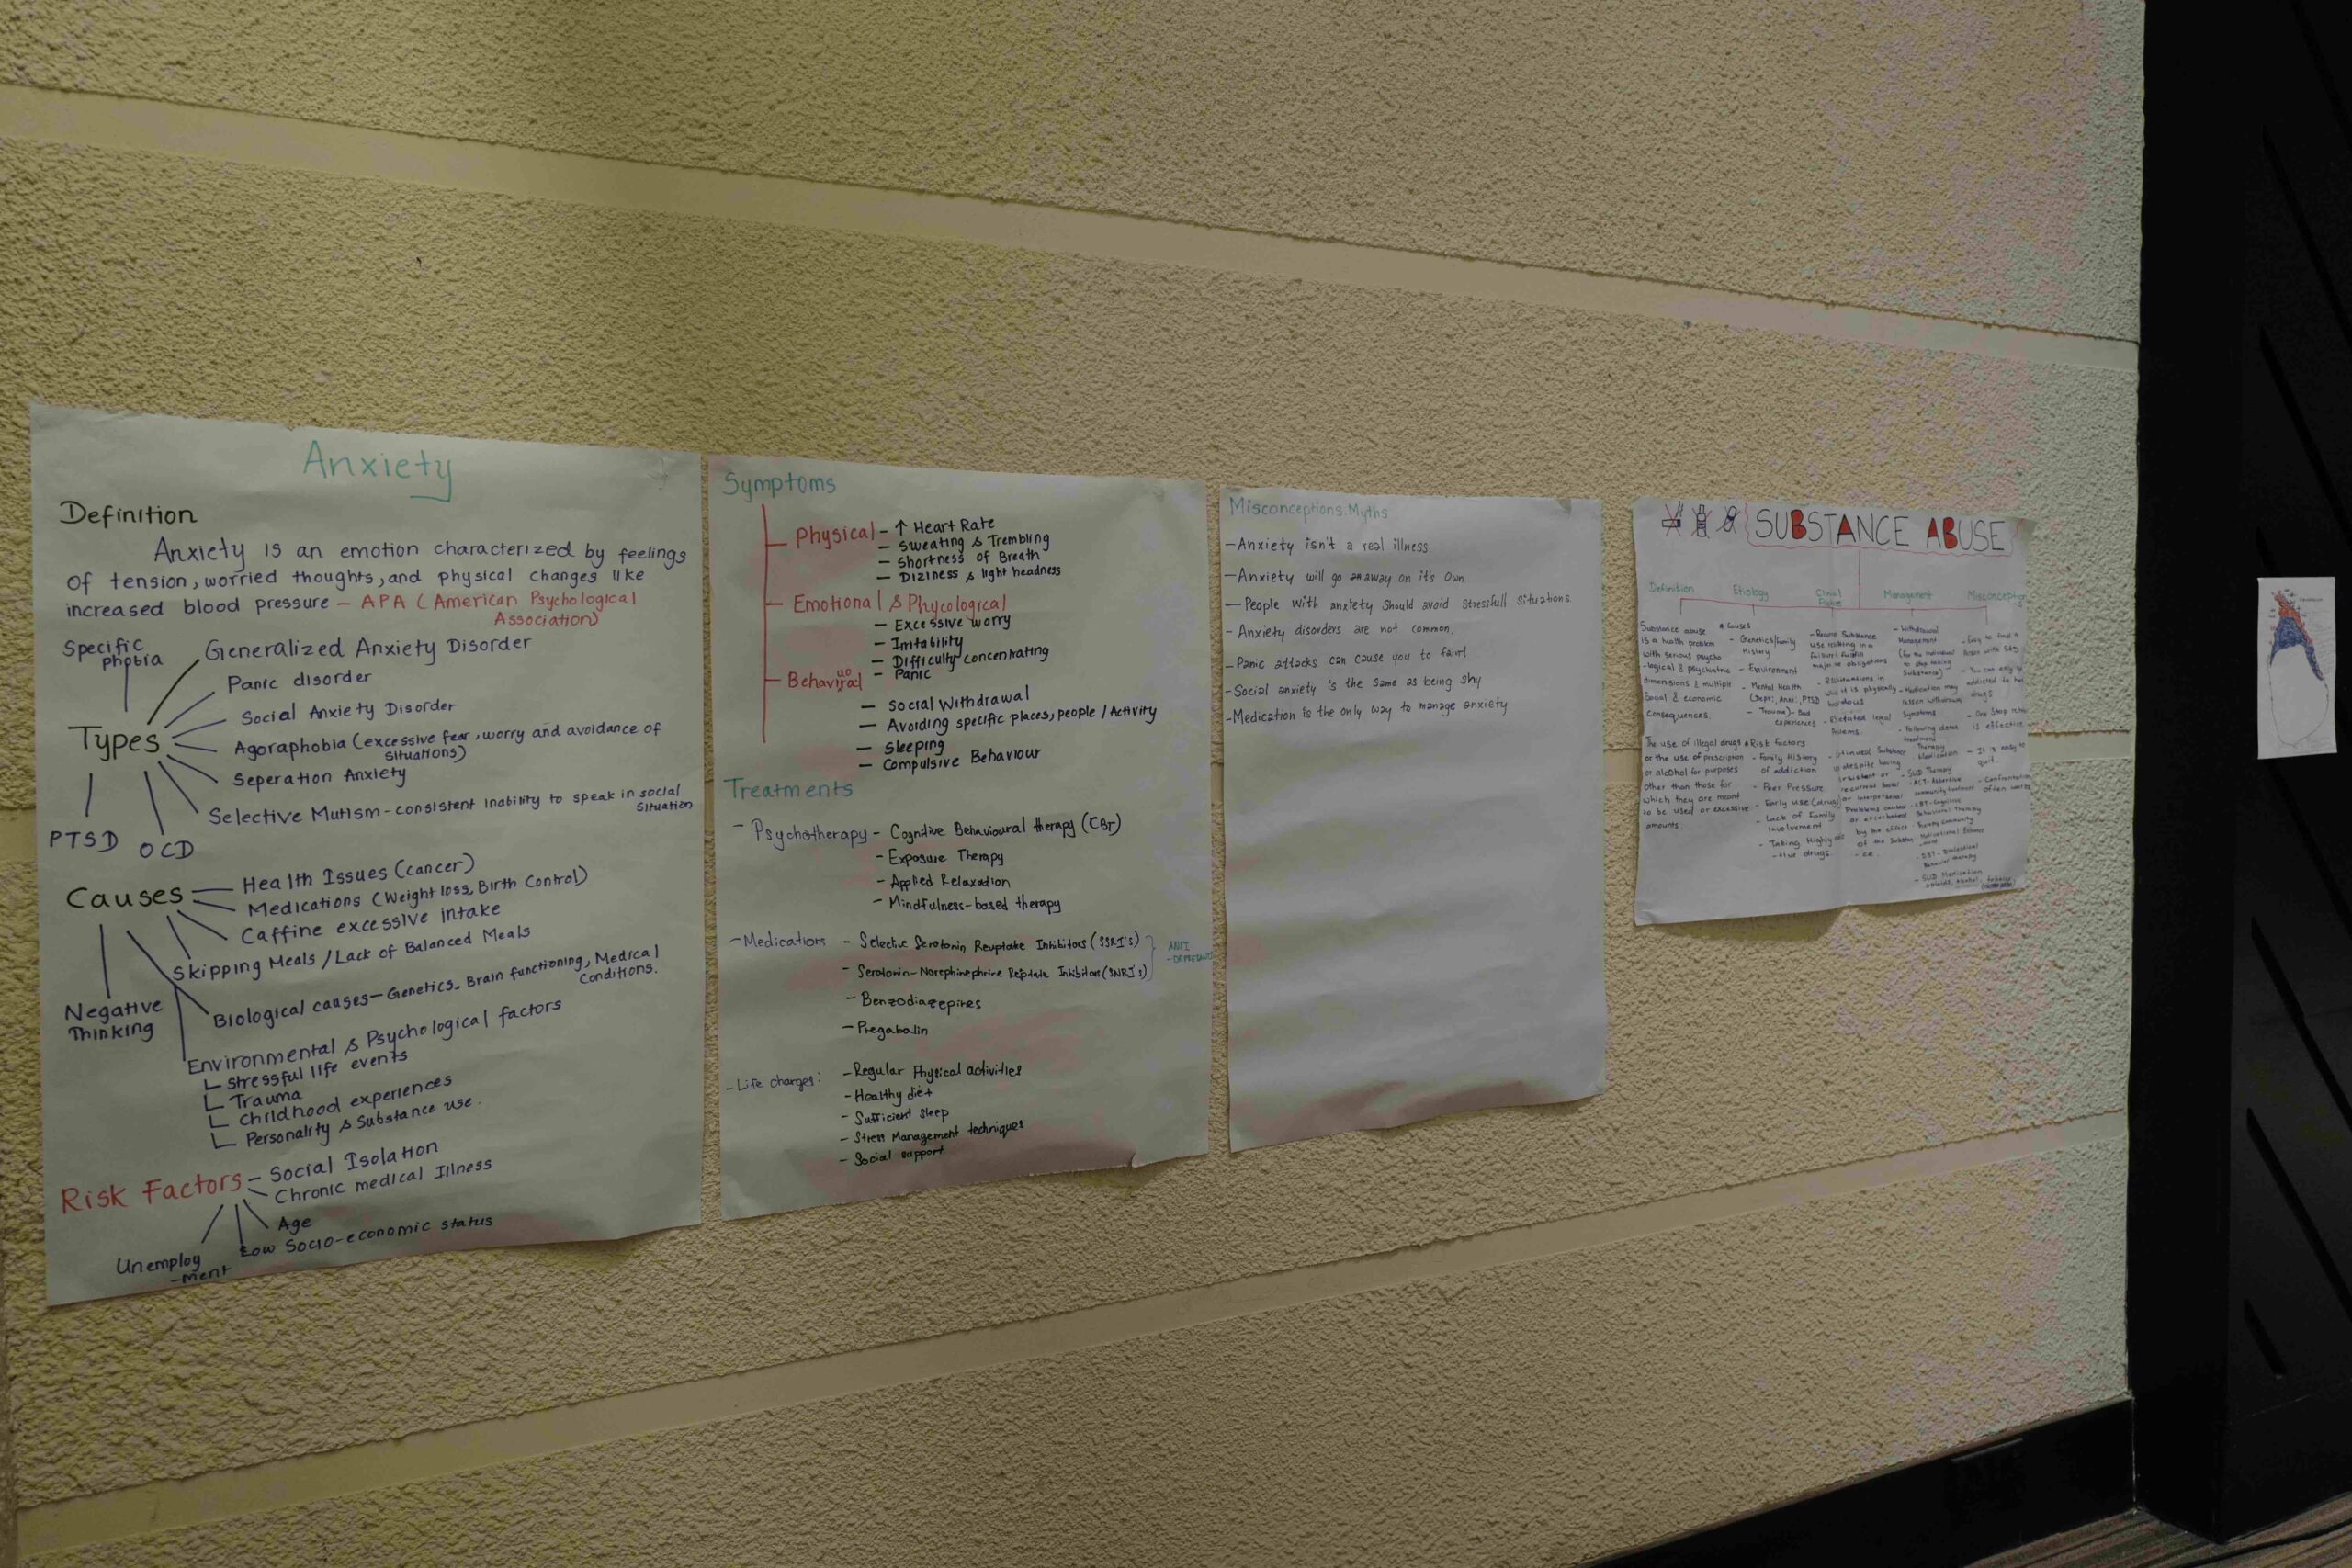 Anxiety
Definition
Anxiety is an emotion characterized by feelings
of tension, worried thoughts, and physical changes like
increased blood pressure - APA (American Psychological
Association)
Specific
phobia
Types
Generalized Anxiety Disorder
Panic disorder
Social Anxiety Disorder
Agoraphobia (excessive fear, worry and avoidance of
situations)
Seperation Anxiety
Selective Mutism - consistent inability to speak in social
situation
PTSD
OCD
Causes
Health Issues (cancer)
Medications (Weight loss, Birth Control)
Caffine excessive intake
Skipping Meals / Lack of Balanced Meals
Biological causes - Genetics, Brain functioning, Medical
Conditions.
Negative
Thinking
Environmental & Psychological factors
Stressful life events
Trauma
Childhood experiences
Personality & Substance use.
Risk Factors - Social Isolation
Chronic medical Illness
Age
Low Socio-economic status
Unemploy
-ment
Symptoms
Physical - ↑ Heart Rate
- Sweating & Trembling
- Shortness of Breath
- Diziness & light headness
Emotional & Phycological
- Excessive worry
- Irritability
- Difficulty concentrating
- Panic
Behavioural
- Social Withdrawal
- Avoiding specific places, people / Activity
- Sleeping
- Compulsive Behaviour
Treatments
- Psychotherapy - Cognitive Behavioural therapy (CBT)
- Exposure Therapy
- Applied Relaxation
- Mindfulness-based therapy
- Medications - Selective Serotonin Reuptake Inhibitors (SSRI's)
- Serotonin-Norephinephrine Reptate Inhibitors (SNRI's)
ANTI
-DEPRESANTS
- Benzodiazepines
- Pregabalin
- Life changes: - Regular Physical activities
- Healthy diet
- Sufficient Sleep
- Stress Management techniques
- Social support
Misconceptions. Myths
- Anxiety isn't a real illness.
- Anxiety will go away on it's own
- People with anxiety should avoid stressfull situations
- Anxiety disorders are not common.
- Panic attacks can cause you to faint
- Social anxiety is the same as being shy
- Medication is the only way to manage anxiety
SUBSTANCE ABUSE
Definition
Substance abuse
is a health problem
with serious psycho
-logical & psychiatric
dimensions & multiple
Social & economic
consequences.
The use of illegal drugs
or the use of prescription
or alcohol for purposes
other than those for
which they are meant
to be used or excessive
amounts.
Etiology
Causes
- Genetics/family
History
- Environment
- Mental Health
- Trauma
experiences
Risk factors
- Family History
of addiction
- Peer Pressure
- Early use (drug)
- Lack of Family
Involvement
- Taking Highly
drugs.
Management
- Withdrawal
Management
to stop taking
Substance)
- Medication may
lessen withdrawal
Symptoms
- SUD Therapy
Behavioral Therapy
Behavior therapy
- SUD Medication
Misconception
- Easy to find a
- You can only
addicted to
drugs
is effective
- It is easy to
quit.
often works